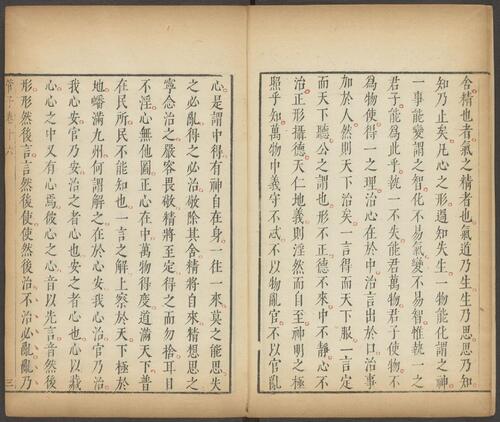 舍精也者氣之精者也氣道乃生生乃思思乃知
知乃止矣凡心之形過知失生一物能化謂之神
一事能變謂之智化不易氣變不易智惟執一之
君子能為此乎執一不失能君萬物君子使物不
為物使得一之理治心在於中治言出於口治事
加於人然則天下治矣一言得而天下服一言定
而天下聽公之謂也形不正德不來中不靜心不
治正形攝德天仁地義則淫然而自至神明之極
照乎知萬物中義守不忒不以物亂官不以官亂
心是謂中得有神自在身一往一來莫之能思失
之必亂得之必治敬除其舍精將自來精想思之
寧念治之嚴容畏敬精將至定得之而勿捨耳目
不淫心無他圖正心在中萬物得度道滿天下普
在民所民不能知也一言之解上察於天下極於
地蟠滿九州何謂解之在於心安我心治官乃治
我心安官乃安治之者心也安之者心也心以藏
心心之中又有心焉彼心之心音以先言音然後
形形然後言言然後使使然後治不治必亂亂乃
管子卷十六
三